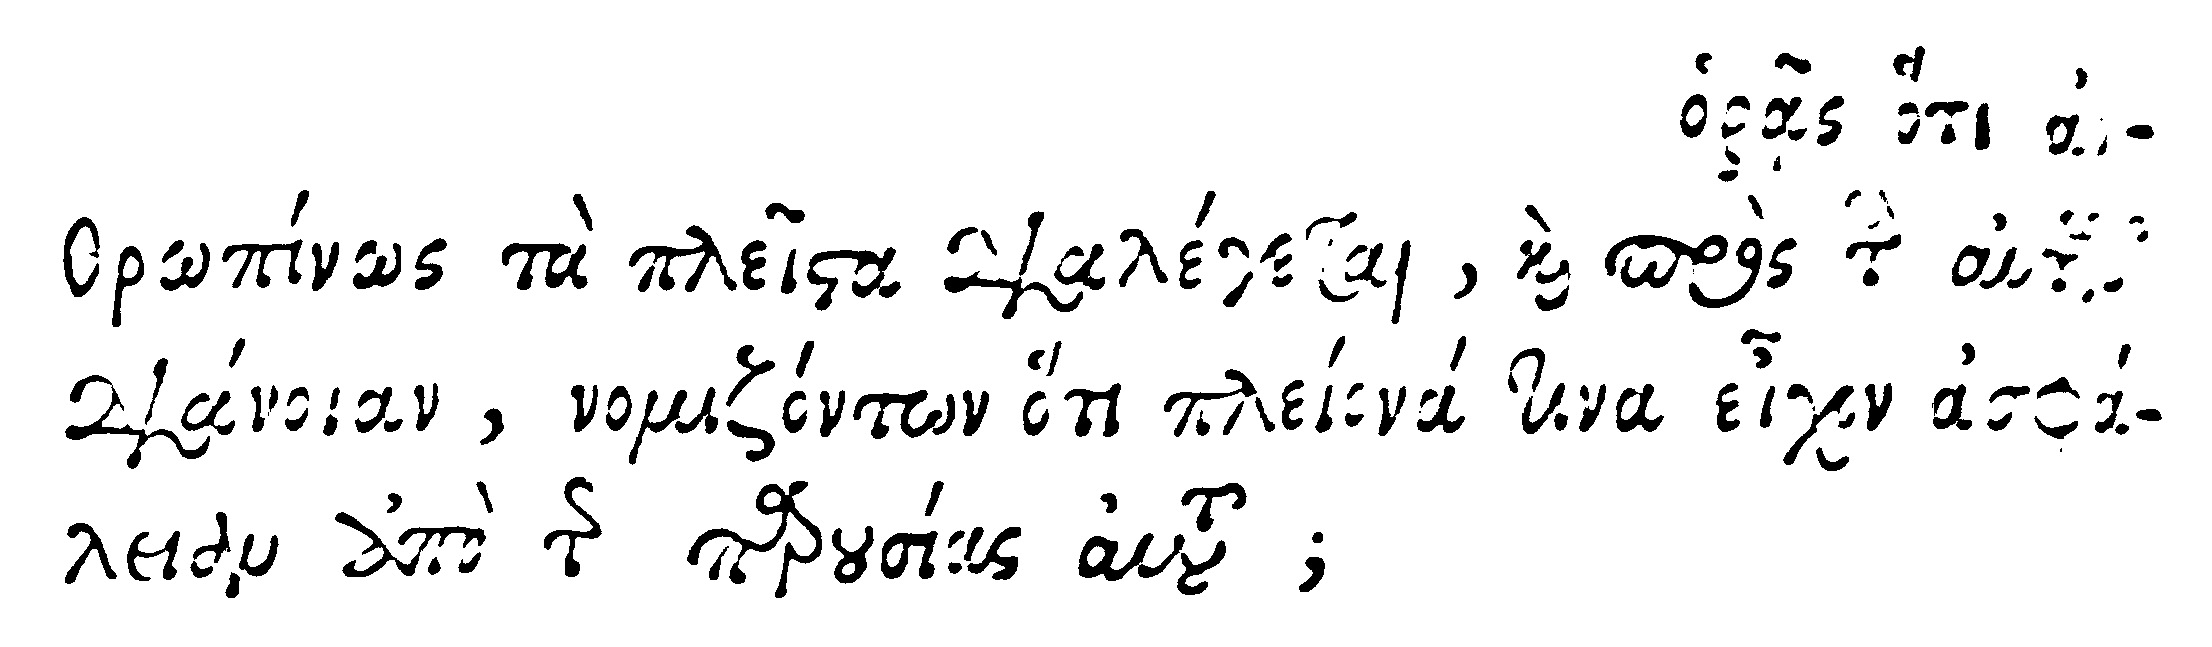 ὁρᾷς ὅτι ἀν-
θρωπίνως τὰ πλεῖστα διαλέγεται, καὶ πρὸς τὴν αὐτῶν
διάνοιαν, νομιζόντων ὅτι πλείονά τινα εἶχον ἀσφά-
λειαν ἀπὸ τῆς παρουσίας αὐτοῦ;